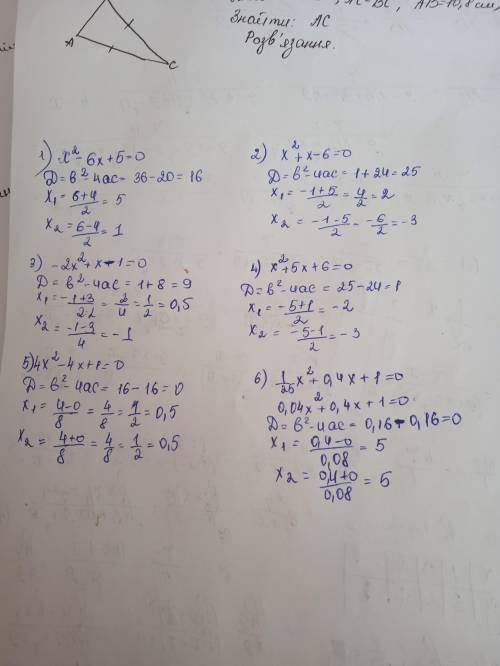 AB=10,8 см,
Знайти: AC
Розв'язання.
A
C
1) x²-6x+5=0
D=b²-4ac=36-20=16
x₁=(6+4)/2=5
x₂=(6-4)/2=1
2) x²+x-6=0
D=b²-4ac=1+24=25
x₁=(-1+5)/2=4/2=2
x₂=(-1-5)/2-(-6)/2=-3
3) -2x²+x-1=0
D=b²-4ac=1+8=9
x₁=(-1+3)/(2·2)=2/4=1/2=0,5
x₂=(-1-3)/4=-1
4) x²+5x+6=0
D=b²-4ac=25-24=1
x₁=(-5+1)/2=-2
x₂=(-5-1)/2=-3
5) 4x²-4x+1=0
D=b²-4ac=16-16=0
x₁=(4-0)/8=4/8=1/2=0,5
x₂=(4+0)/8=4/8=1/2=0,5
6) 1/25x²+0,4x+1=0
0,04x²+0,4x+1=0
D=b²-4ac=0,16-0,16=0
x₁=(0,4-0)/0,08=5
x₂=(0,4+0)/0,08=5